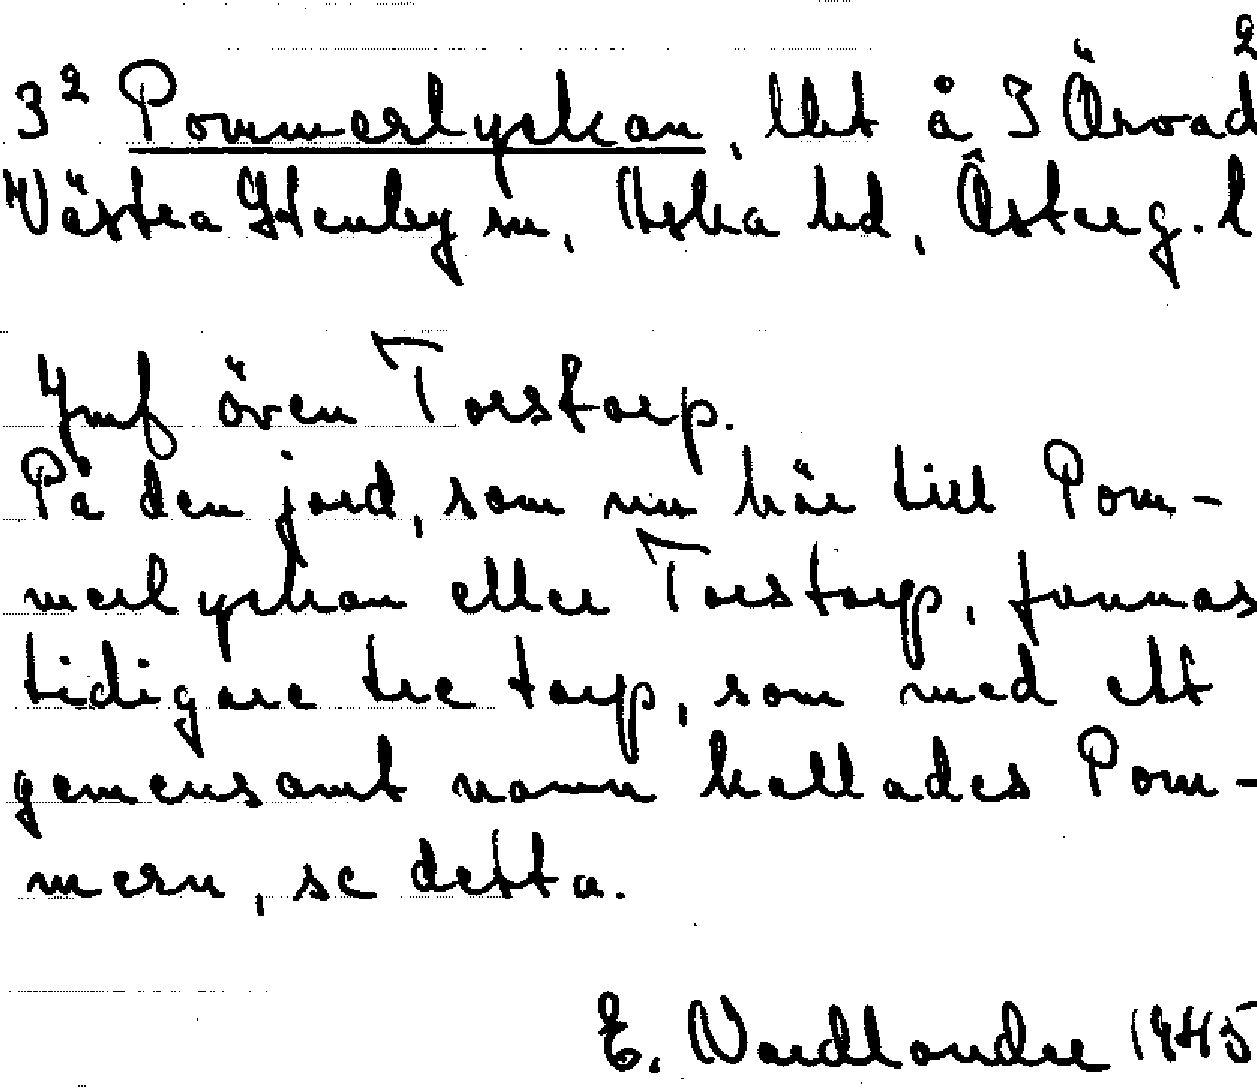 3² Pommerlyckan, lht å 3 Örvad²
Västra Stenby sn, Aska hd, Österg. l
Jmf även Torstorp.
På den jord, som nu hör till Pom-
merlyckan eller Torstorp, fannas
tidigare tre torp, som med ett
gemensamt namn kallades Pom-
mern, se detta.
E. Nordlander 1945